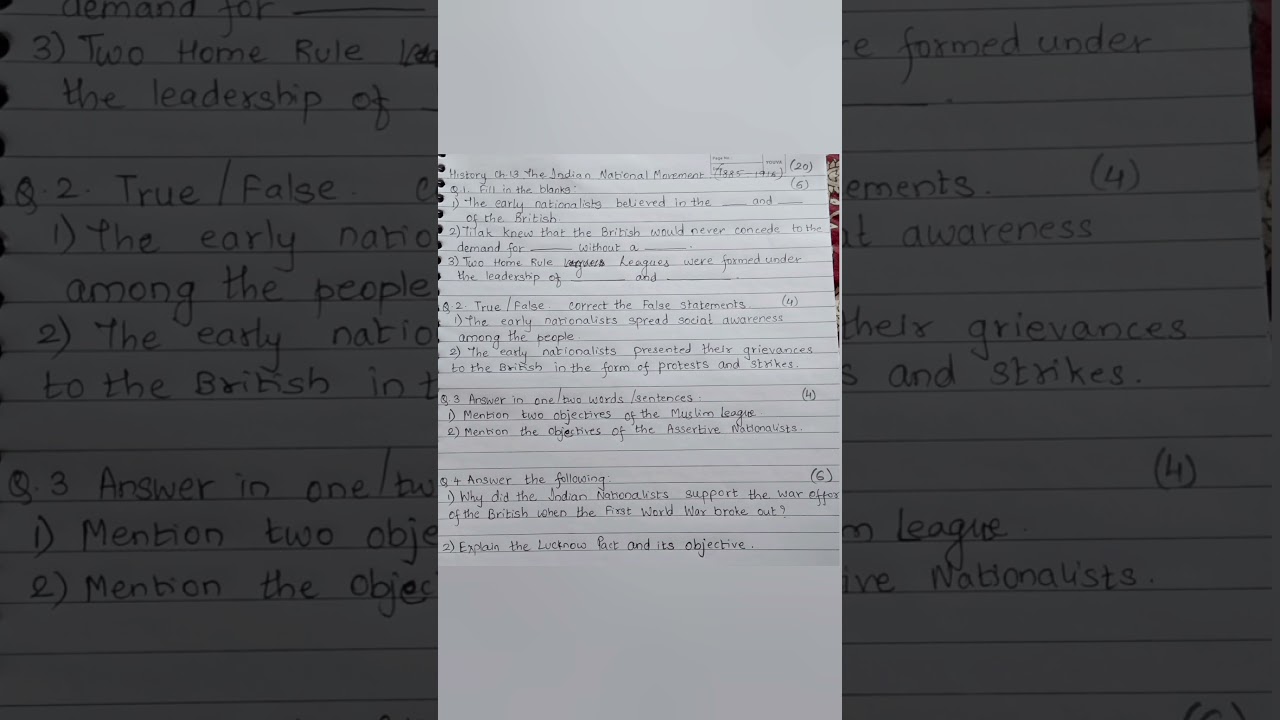 Page No.
History Ch.13 The Indian National Movement (1885-1916) (20)
Q.1. Fill in the blanks: (6)
1) The early nationalists believed in the ___ and ___
of the British
2) Tilak knew that the British would never concede to the
demand for ______ without a ______.
3) Two Home Rule Leagues were formed under
the leadership of ________ and __________.
Q.2. True/False. correct the False statements. (4)
1) The early nationalists spread social awareness
among the people.
2) The early nationalists presented their grievances
to the British in the form of protests and strikes.
Q.3 Answer in one/two words/sentences: (4)
1) Mention two objectives of the Muslim League
2) Mention the objectives of the Assertive Nationalists.
Q.4 Answer the following: (6)
1) Why did the Indian Nationalists support the war effor
of the British when the First World War broke out?
2) Explain the Lucknow Pact and its objective.